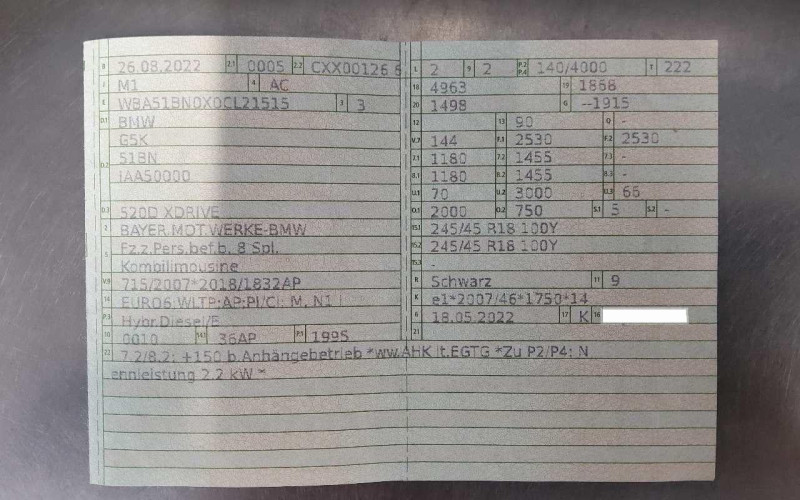 B 26.08.2022 2.1 0005 2.2 CXX00126 6
J M1 4 AC
E WBA51BN0X0CL21515 3 3
D.1 BMW
D.2 G5K
51BN
IAA50000
D.3 520D XDRIVE
2 BAYER.MOT.WERKE-BMW
5 Fz.z.Pers.bef.b. 8 Spl.
Kombilimousine
V.9 715/2007*2018/1832AP
14 EURO6;WLTP;AP;PI/CI; M, N1 I
P.3 Hybr.Diesel/E
10 0010 14.1 36AP P.1 1995
L 2 9 2 P.2 P.4 140/4000 T 222
18 4963 19 1868
20 1498 G --1915
12 13 90 Q -
V.7 144 F.1 2530 F.2 2530
7.1 1180 7.2 1455 7.3 -
8.1 1180 8.2 1455 8.3 -
U.1 70 U.2 3000 U.3 66
O.1 2000 O.2 750 S.1 5 S.2 -
15.1 245/45 R18 100Y
15.2 245/45 R18 100Y
15.3 -
R Schwarz 11 9
K e1*2007/46*1750*14
6 18.05.2022 17 K 16
21
22 7.2/8.2: +150 b.Anhängebetrieb *ww.AHK lt.EGTG *Zu P2/P4: N
ennleistung 2.2 kW *